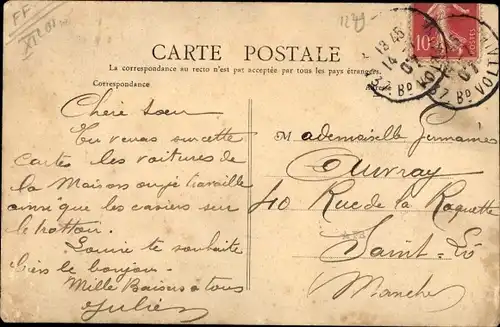 FF
CARTE POSTALE
La correspondance au recto n'est pas acceptée par tous les pays étrangers.
Correspondance
Adresse
10
18 45
14
07
37. Bd VOLTAIRE
Chère Soeur
Tu veras sur cette
cartes les voitures de
la Maison ou je travaille
ainsi que les casiers sur
le trottoir.
Louise te souhaite
bien le bonjour.
Mille Baisers a tous
Julien
Mademoiselle Germaines
Auvray
40 Rue de la Roquette
Saint-Lô
Manche